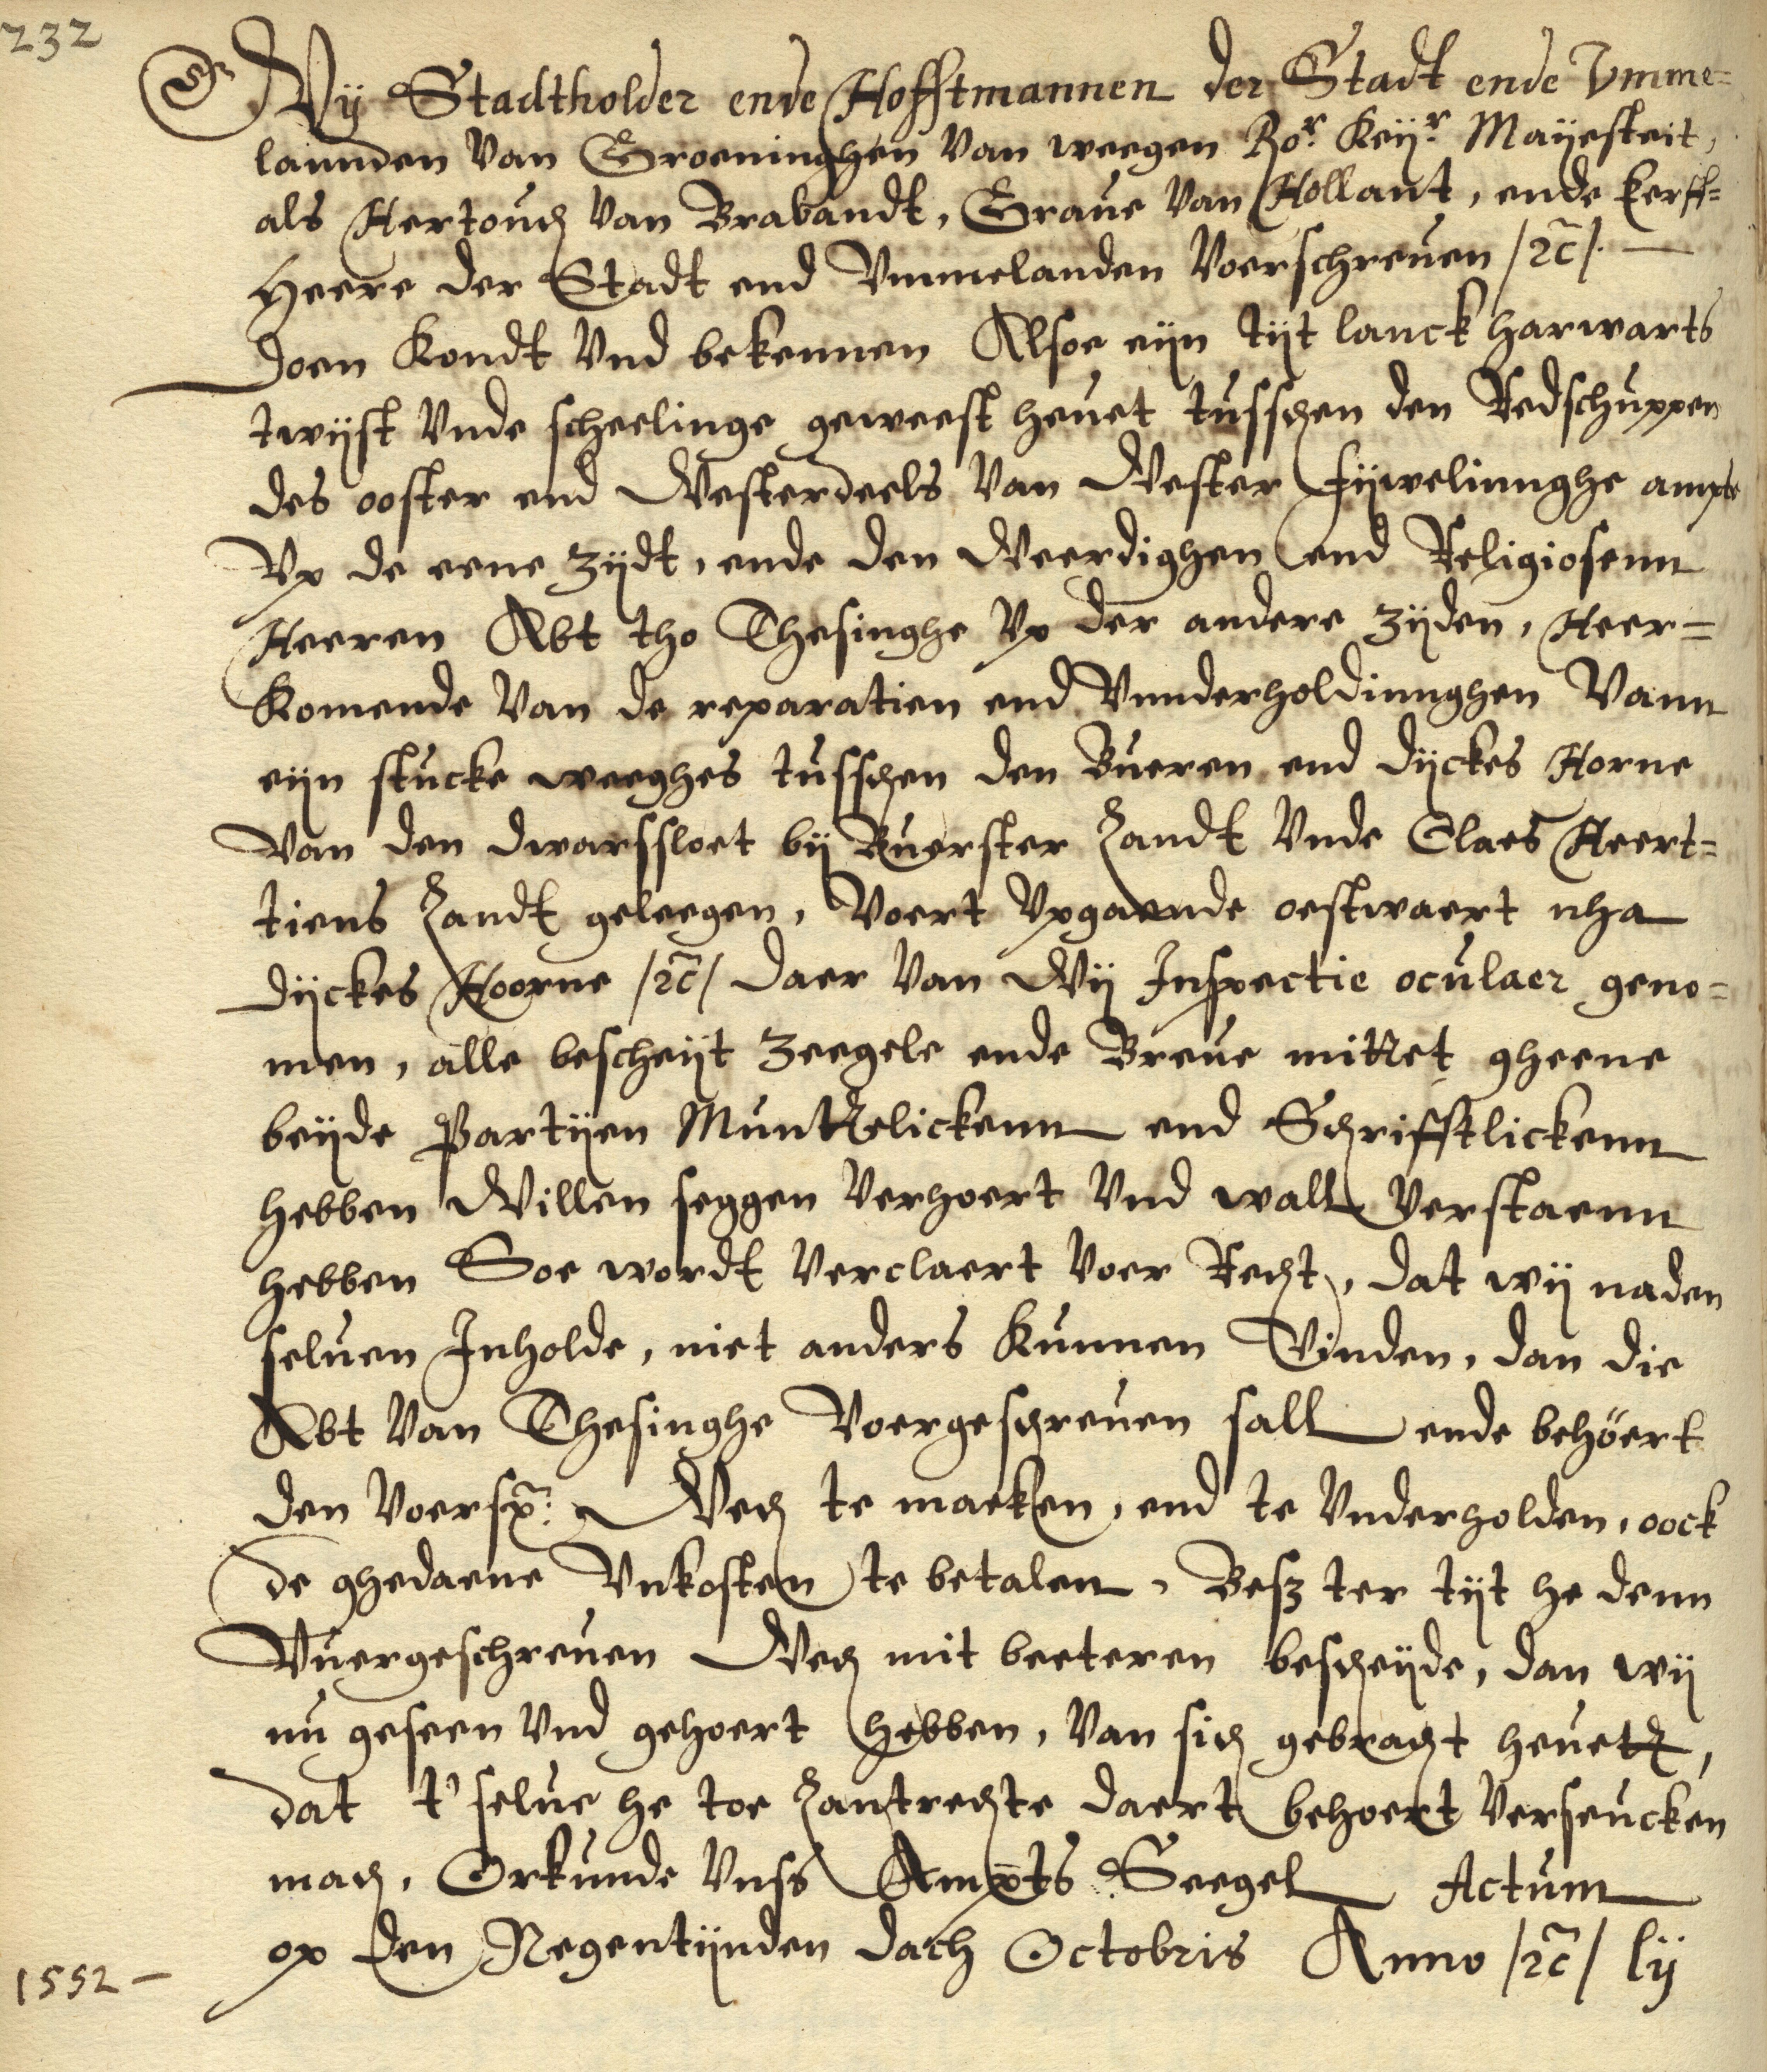 232
Wij Stadtholder ende Hofftmannen der Stadt ende Vmme=
lannden van Groeninghen van weegen Ro.r Keij.r Maijesteit,
als Hertouch van Brabandt, Graue van Hollant, ende Eerff=
Heere der Stadt end Vmmelanden voerschreuen /rc/. —
Doen kondt vnd bekennen Alsoe eijn tijt lanck harwarts
twijst vnde scheelinge geweest heuet tusschen den Redschuppen
des ooster end Westerdeels van Wester Fijwelinnghe ampte
Vp de eene zijdt, ende den Weerdighen end Religiosenn
Heeren Abt tho Thesinghe vp der andere zijden, Heer=
komende van de reparatien end Vnnderholdinnghen Vann
eijn stucke weeghes tusschen den Bueren end Dijckes Horne
Van den dwarssloet bij Buerster Zandt vnde Claes Heert=
tiens Zandt geleegen, Voert vpgaende oestwaert nha
Dijckes Hoorne /rc/ daer van Wij Inspectie oculaer geno=
men, alle bescheijt zeegele ende Breue mittet gheene
beijde Partijen Munttelickenn end Schrifftlickenn
hebben Willen seggen verhoert vnd wall verstaenn
hebben Soe wordt verclaert voer Recht, dat wij naden
seluen Inholde, niet anders kunnen Vinden, dan die
Abt van Thesinghe Voergeschreuen sall ende behöert
den voersz: Wech te maeken, end te vnderholden, oock
de ghedaene Vnkosten te betalen, Besz ter tijt he denn
Vuergeschreuen Wech mit beeteren bescheijde, dan wij
nu geseen vnd gehoert hebben, van sich gebracht heuett,
dat t' selue he toe Zantrechte daert behoert verseucken
mach, Orkunde vnss Ampts Seegel Actum
op den Negentijnden dach Octobris Anno /rc/ lij
1552 —